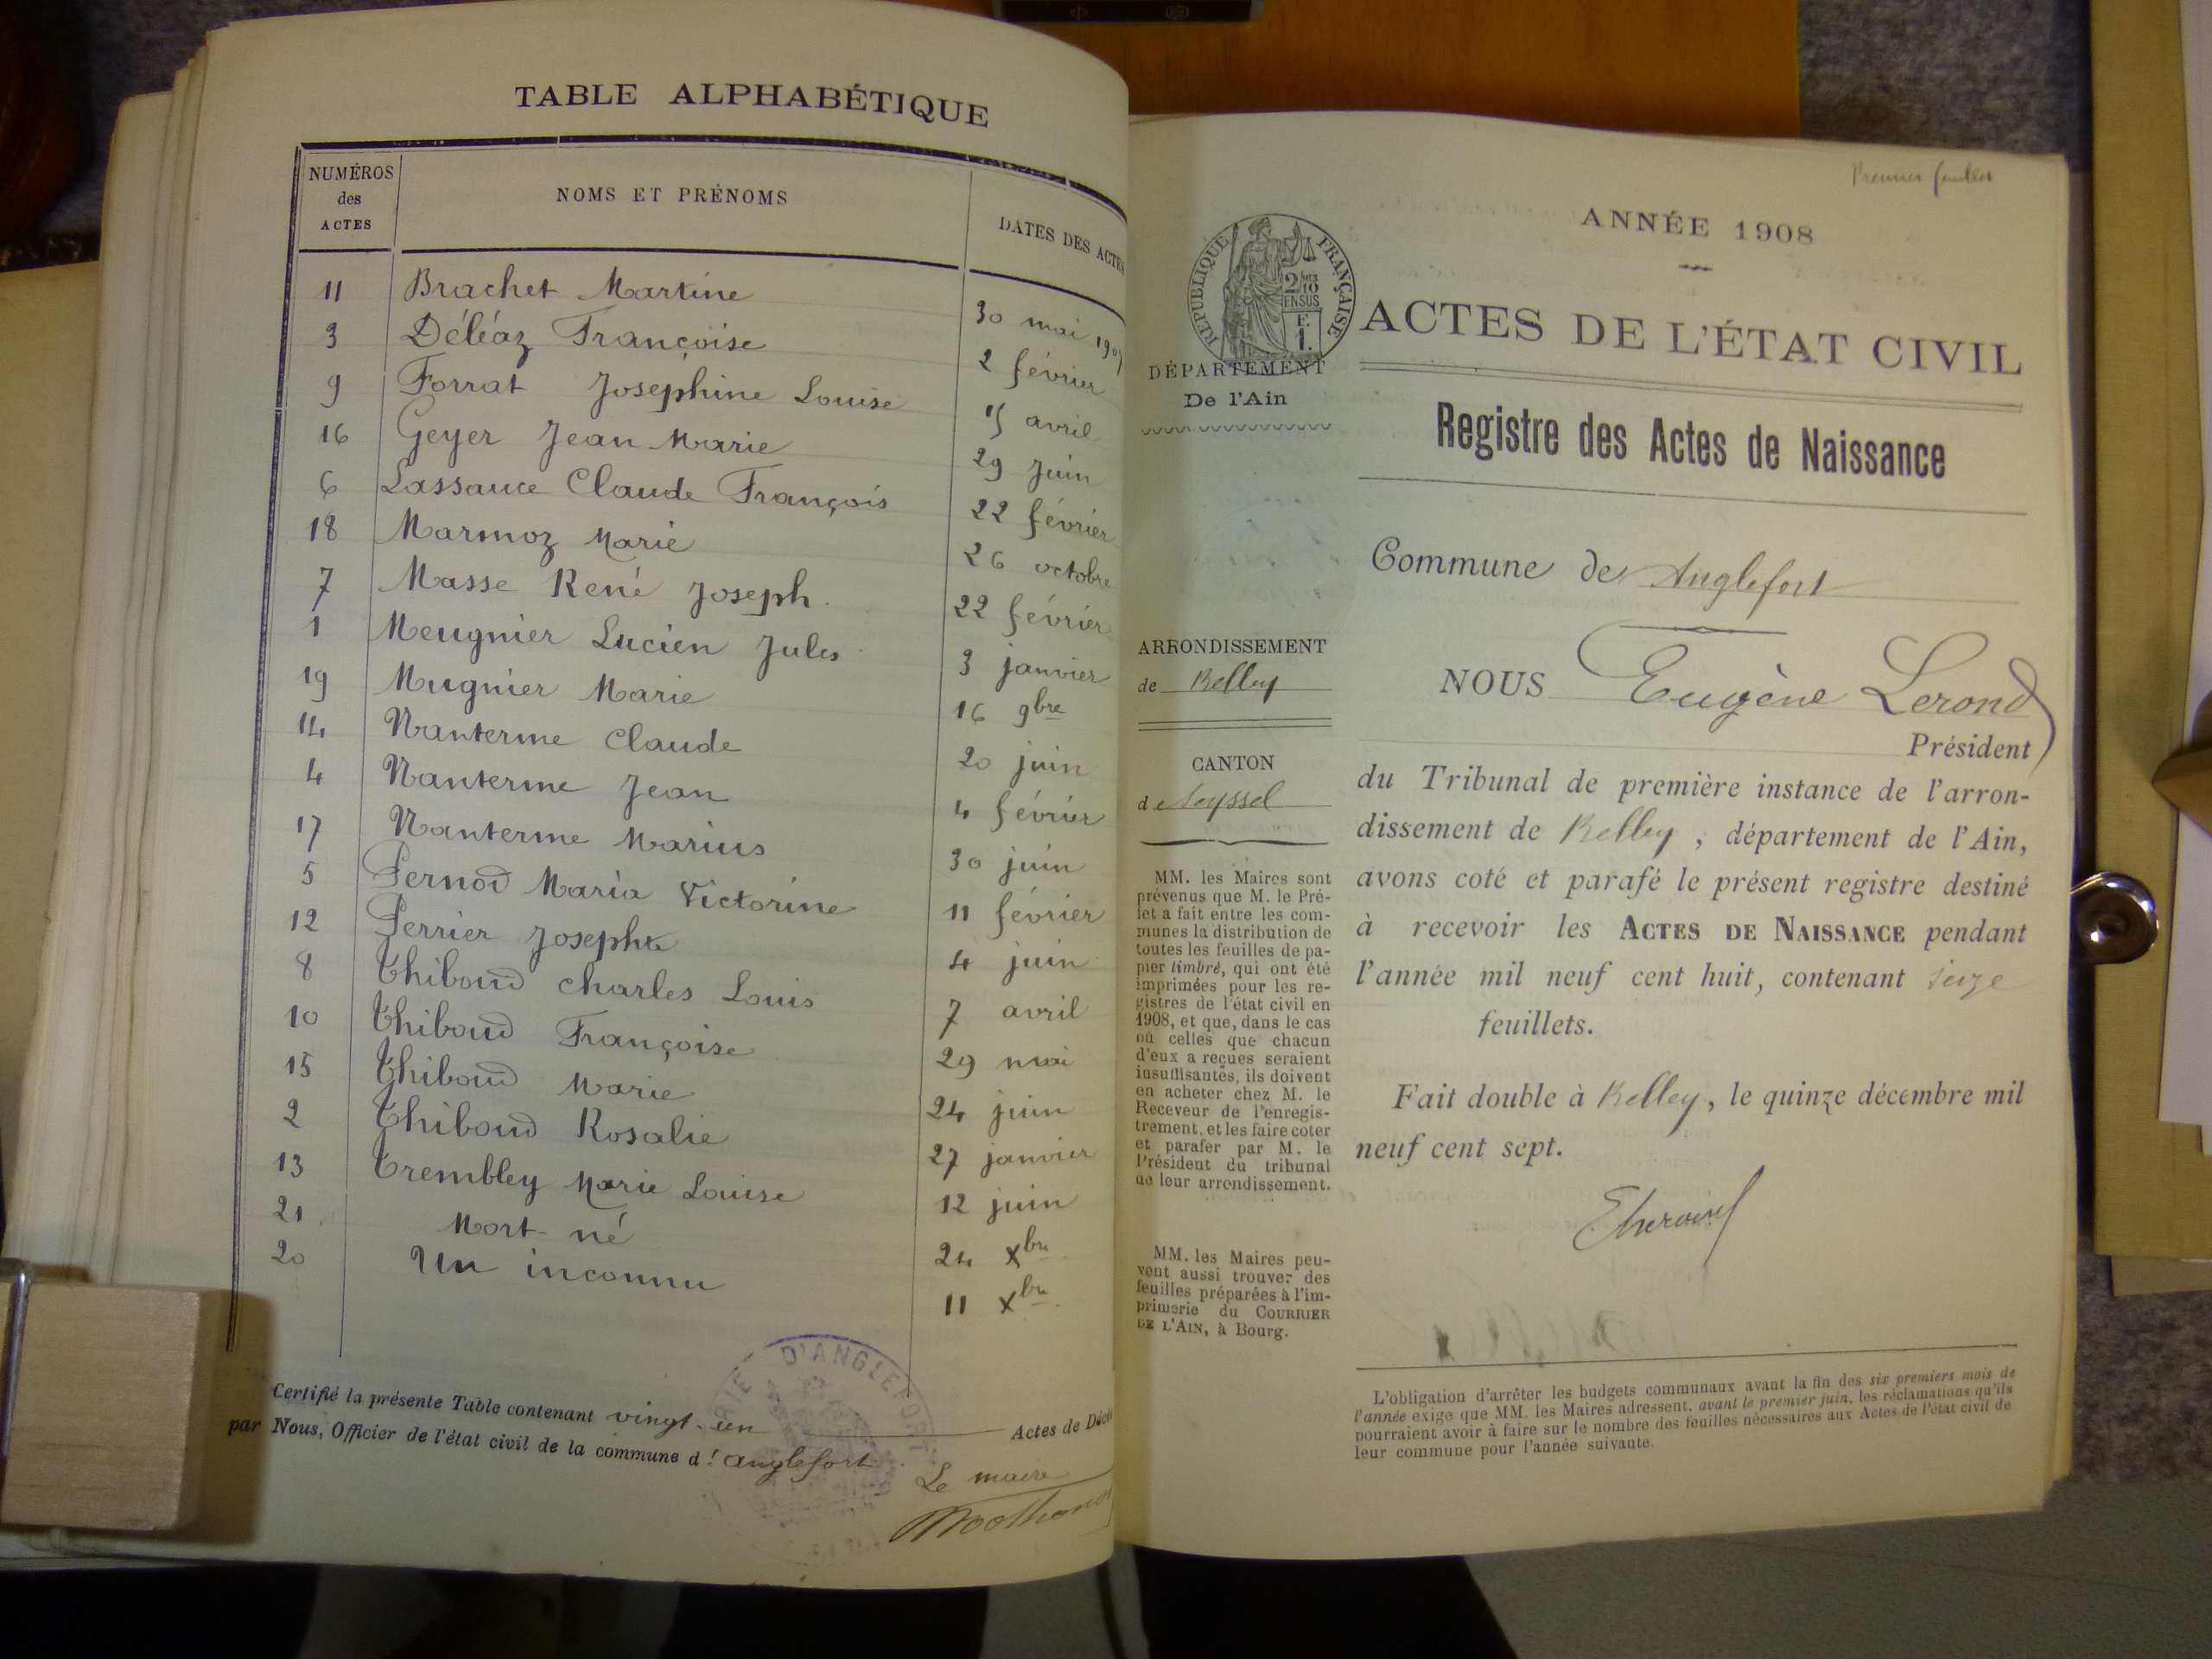 TABLE ALPHABÉTIQUE
NUMÉROS des ACTES NOMS ET PRÉNOMS DATES DES ACTES
11 Brachet Martine 30 mai 1907
3 Déléaz Françoise 2 février
9 Forrat Josephine Louise 15 avril
16 Geyer Jean Marie 29 Juin
6 Lassauce Claude François 22 février
18 Marmoz Marie 26 octobre
7 Masse René Joseph. 22 février
1 Meugnier Lucien Jules 3 janvier
19 Mugnier Marie 16 9bre
14 Nanterme Claude 20 juin
4 Nanterme Jean 4 février
17 Nanterme Marius 30 juin
5 Pernod Maria Victorine 11 février
12 Perrier Josephte 4 juin
8 Thiboud Charles Louis 7 avril
10 Thiboud Françoise 29 mai
15 Thiboud Marie 24 juin
2 Thiboud Rosalie 27 janvier
13 Trembley Marie Louise 12 juin
21 Mort-né 24 Xbre
20 Un inconnu 11 Xbre
Certifié la présente Table contenant vingt-un Actes de Décès
par Nous, Officier de l'état civil de la commune d'Anglefort
Le maire
D'ANGLEFORT
ANNÉE 1908
RÉPUBLIQUE FRANÇAISE
ACTES DE L'ÉTAT CIVIL
DÉPARTEMENT
De l'Ain
Registre des Actes de Naissance
Commune de Anglefort
ARRONDISSEMENT
de Belley
CANTON
de Seyssel
NOUS Eugène Lerond
Président
du Tribunal de première instance de l'arron-
dissement de Belley, département de l'Ain,
avons coté et parafé le présent registre destiné
à recevoir les ACTES DE NAISSANCE pendant
l'année mil neuf cent huit, contenant seize
feuillets.
Fait double à Belley, le quinze décembre mil
neuf cent sept.
MM. les Maires sont
prévenus que M. le Pré-
fet a fait entre les com-
munes la distribution de
toutes les feuilles de pa-
pier timbré, qui ont été
imprimées pour les re-
gistres de l'état civil en
1908, et que, dans le cas
où celles que chacun
d'eux a reçues seraient
insuffisantes, ils doivent
en acheter chez M. le
Receveur de l'enregis-
trement, et les faire coter
et parafer par M. le
Président du tribunal
de leur arrondissement.
MM. les Maires peu-
vent aussi trouver des
feuilles préparées à l'im-
primerie du COURRIER
DE L'AIN, à Bourg.
L'obligation d'arrêter les budgets communaux avant la fin des six premiers mois de
l'année exige que MM. les Maires adressent, avant le premier juin, les réclamations qu'ils
pourraient avoir à faire sur le nombre des feuilles nécessaires aux Actes de l'état civil de
leur commune pour l'année suivante.